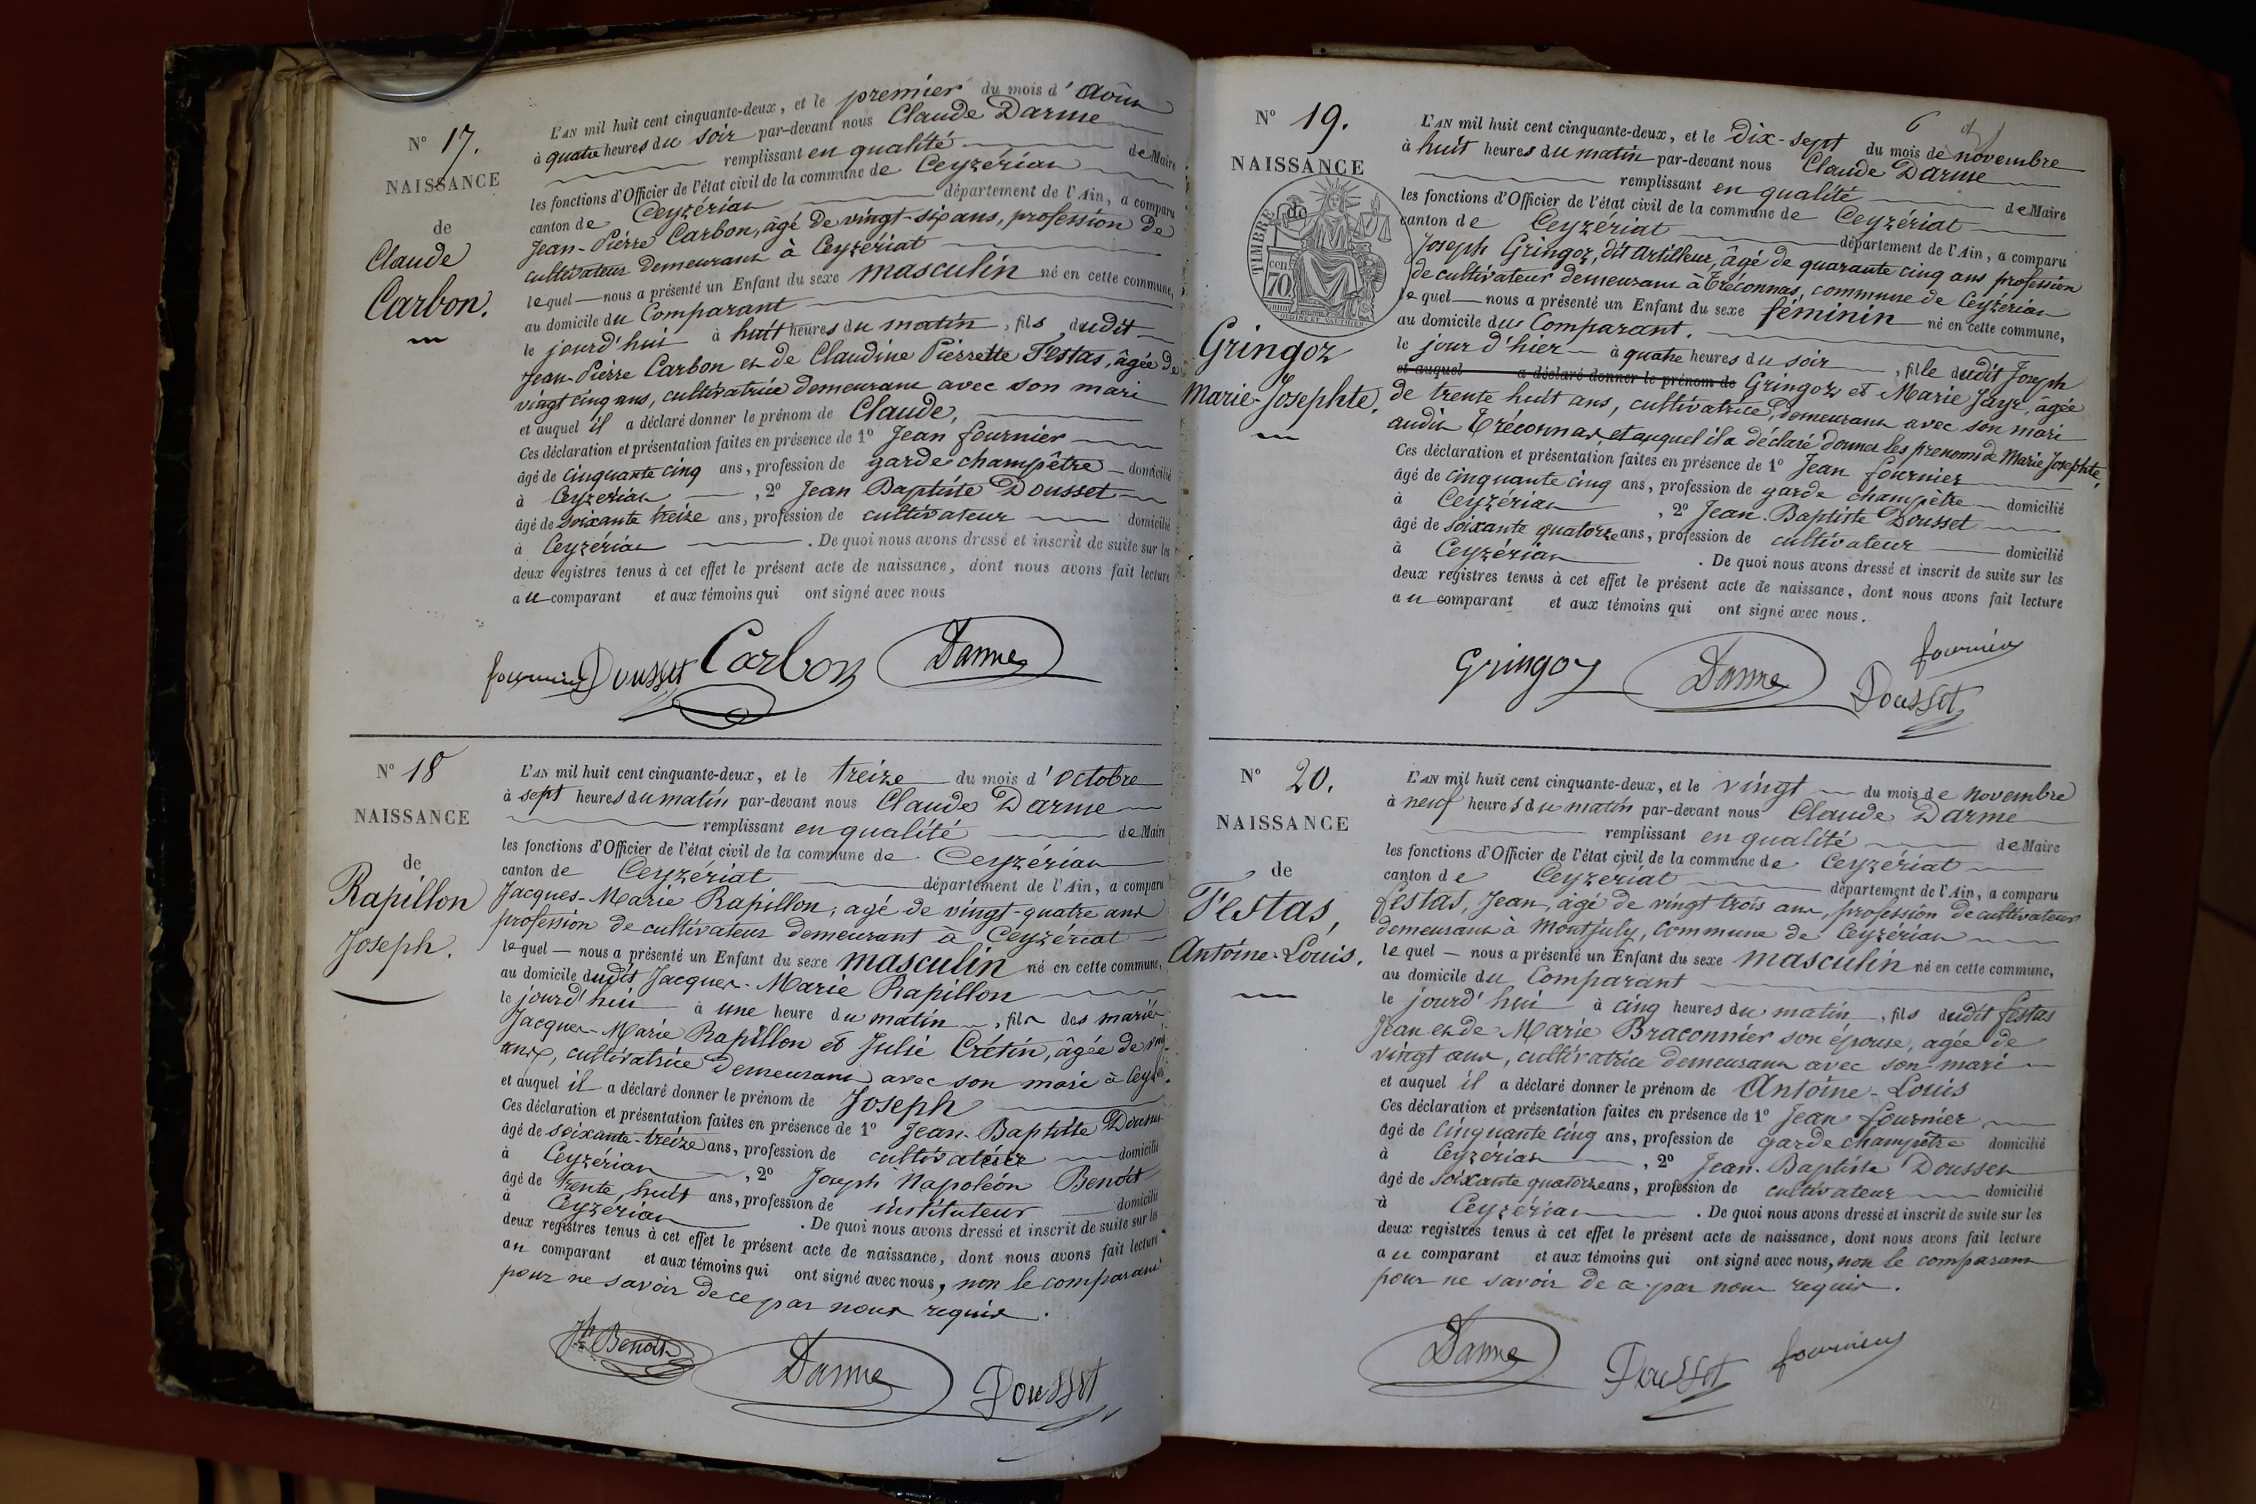 N° 17.
NAISSANCE
de
Claude
Carbon.
L'AN mil huit cent cinquante-deux, et le premier du mois d'Août
à quatre heures du soir par-devant nous Claude Darme
remplissant en qualité de Maire
les fonctions d'Officier de l'état civil de la commune de Ceyzériat
canton de Ceyzériat département de l'Ain, a comparu
Jean-Pierre Carbon, âgé de vingt-six ans, profession de
cultivateur demeurant à Ceyzériat
lequel nous a présenté un Enfant du sexe masculin né en cette commune,
au domicile du Comparant
le jourd'hui à huit heures du matin, fils dudit
Jean-Pierre Carbon et de Claudine Pierrette Festas, âgée de
vingt cinq ans, cultivatrice demeurant avec son mari
et auquel il a déclaré donner le prénom de Claude,
Ces déclaration et présentation faites en présence de 1° Jean fournier
âgé de cinquante cinq ans, profession de garde champêtre domicilié
à Ceyzériat, 2° Jean Baptiste Dousset
âgé de soixante treize ans, profession de cultivateur domicilié
à Ceyzériat. De quoi nous avons dressé et inscrit de suite sur les
deux registres tenus à cet effet le présent acte de naissance, dont nous avons fait lecture
au comparant et aux témoins qui ont signé avec nous
fournier Dousset Carbon Darme
N° 18
NAISSANCE
de
Rapillon
Joseph.
L'AN mil huit cent cinquante-deux, et le treize du mois d'octobre
à sept heures du matin par-devant nous Claude Darme
remplissant en qualité de Maire
les fonctions d'Officier de l'état civil de la commune de Ceyzériat
canton de Ceyzeriat département de l'Ain, a comparu
Jacques-Marie Rapillon, agé de vingt-quatre ans
profession de cultivateur demeurant à Ceyzériat
lequel nous a présenté un Enfant du sexe masculin né en cette commune,
au domicile dudit Jacques-Marie Rapillon
le jourd'hui à une heure du matin, fils des mariés
Jacques-Marie Rapillon et Julie Crétin, âgée de
ans, cultivatrice demeurant avec son mari à
et auquel il a déclaré donner le prénom de Joseph
Ces déclaration et présentation faites en présence de 1° Jean-Baptiste Dousset
âgé de soixante-treize ans, profession de cultivateur domicilié
à Ceyzériat, 2° Joseph Napoléon Benoit
âgé de trente huit ans, profession de instituteur domicilié
à Ceyzériat. De quoi nous avons dressé et inscrit de suite sur les
deux registres tenus à cet effet le présent acte de naissance, dont nous avons fait lecture
au comparant et aux témoins qui ont signé avec nous, non le comparant
pour ne savoir de ce par nous requis.
Jh Benoit Darme Dousset
6
N° 19.
NAISSANCE
de
TIMBRE
70
Gringoz
Marie-Josephte.
L'AN mil huit cent cinquante-deux, et le Dix-sept du mois de novembre
à huit heures du matin par-devant nous Claude Darme
remplissant en qualité de Maire
les fonctions d'Officier de l'état civil de la commune de Ceyzériat
canton de Ceyzériat département de l'Ain, a comparu
Joseph Gringoz, dit artilleur, âgé de quarante cinq ans profession
de cultivateur demeurant à Tréconnas, commune de Ceyzériat
lequel nous a présenté un Enfant du sexe féminin né en cette commune,
au domicile du Comparant.
le jour d'hier à quatre heures du soir, fille dudit Joseph
et auquel a déclaré donner le prénom de Gringoz et Marie Jayr, âgée
de trente huit ans, cultivatrice, demeurant avec son mari
audit Tréconnas, et auquel il a déclaré donner les prenoms de Marie Josephte.
Ces déclaration et présentation faites en présence de 1° Jean fournier
âgé de cinquante cinq ans, profession de garde champêtre domicilié
à Ceyzériat, 2° Jean-Baptiste Dousset
âgé de soixante quatorze ans, profession de cultivateur domicilié
à Ceyzériat. De quoi nous avons dressé et inscrit de suite sur les
deux registres tenus à cet effet le présent acte de naissance, dont nous avons fait lecture
au comparant et aux témoins qui ont signé avec nous.
Gringoz Darme fournier
Dousset
N° 20.
NAISSANCE
de
Festas,
Antoine-Louis.
L'AN mil huit cent cinquante-deux, et le vingt du mois de novembre
à neuf heures du matin par-devant nous Claude Darme
remplissant en qualité de Maire
les fonctions d'Officier de l'état civil de la commune de Ceyzériat
canton de Ceyzériat département de l'Ain, a comparu
festas, Jean, âgé de vingt trois ans, profession de cultivateur
demeurant à Montjuly, commune de Ceyzériat
lequel nous a présenté un Enfant du sexe masculin né en cette commune,
au domicile du Comparant
le jourd'hui à cinq heures du matin, fils dudit festas
Jean et de Marie Braconnier son épouse, agée de
vingt ans, cultivatrice demeurant avec son mari
et auquel il a déclaré donner le prénom de Antoine-Louis
Ces déclaration et présentation faites en présence de 1° Jean fournier
âgé de cinquante cinq ans, profession de garde champêtre domicilié
à Ceyzériat, 2° Jean-Baptiste Dousset
âgé de soixante quatorze ans, profession de cultivateur domicilié
à Ceyzériat. De quoi nous avons dressé et inscrit de suite sur les
deux registres tenus à cet effet le présent acte de naissance, dont nous avons fait lecture
au comparant et aux témoins qui ont signé avec nous, non le comparant
pour ne savoir de ce par nous requis.
Darme Dousset fournier